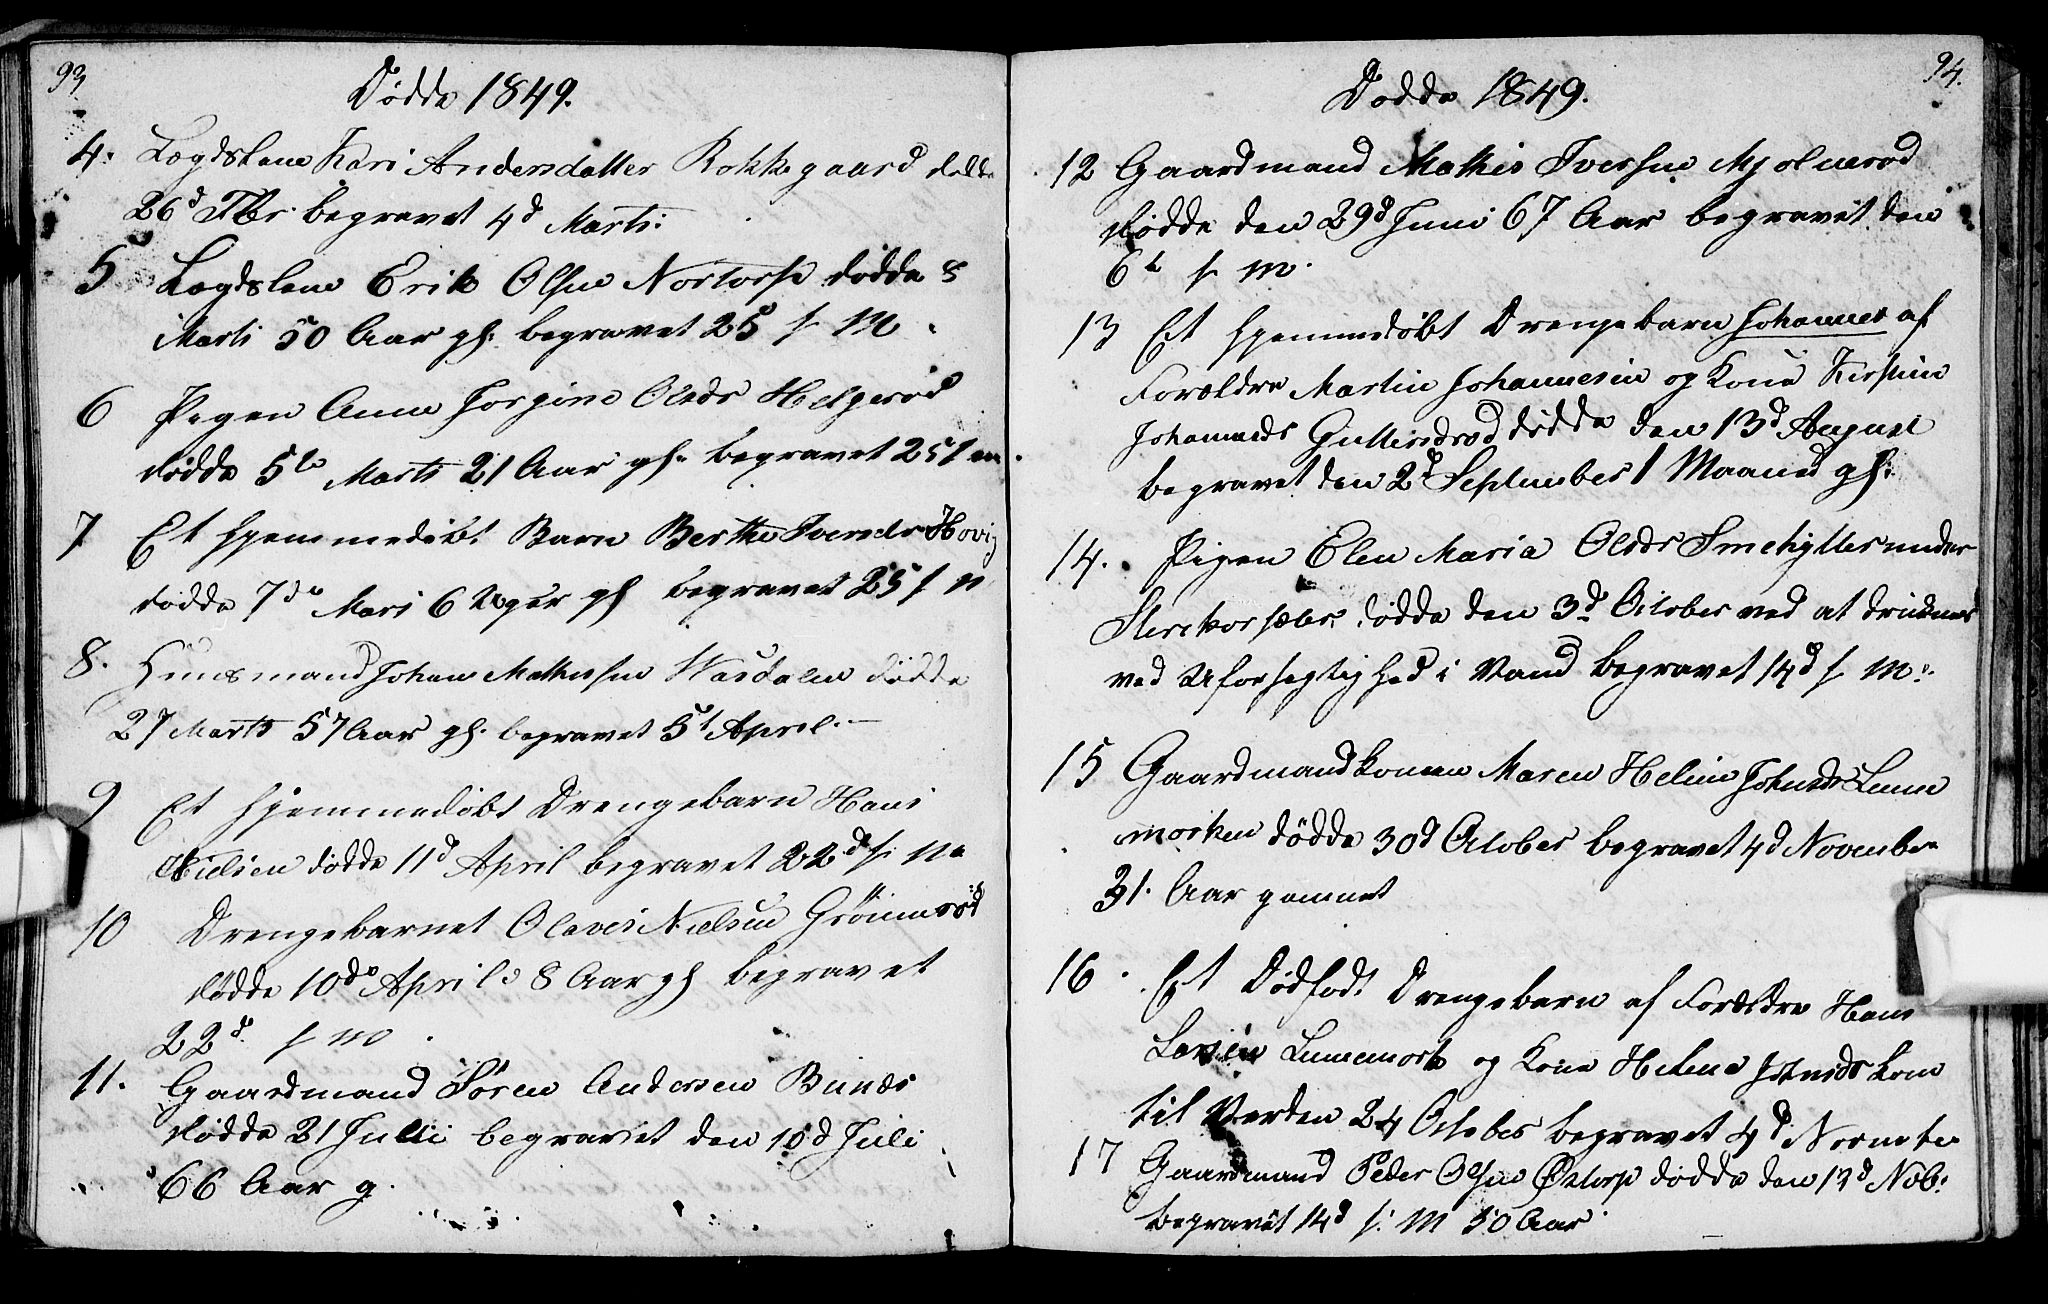 93
Dødde 1849.
4. Lægdslem Kari Andersdatter Rokkegaard dødde
26d Fbr. begravet 4d Marts.
5 Lægdslem Erik Olsen Nortorp dødde 8
Marts 50 Aar gl. begravet 25 s. M.
6 Pigen Anne Jorgine Olsdr Helgerød
dødde 5te Marts 21 Aar gl. begravet 25 s. m.
7 Et hjemmedøbt Barn Berthe Iversdr Hovig
dødde 7de Mars 6 Uger gl begravet 25 s. M
8. Huusmand Johan Mathisen dødde
27 Marts 57 Aar gl. begravet 5t April.
9 Et hjemmedøbt Drengebarn Hans
Nielsen dødde 11d April begravet 22d s. M.
10 Drengebarnet Olaves Nielsen Grønnerød
dødde 10de April 8 Aar gl begravet
22d. s. M.
11. Gaardmand Søren Andersen Bunæs
dødde 21 Julii begravet den 10d Juli
66 Aar g.
94.
Dødde 1849.
12 Gaardmand Mathis Iversen Mjølnerød
dødde den 29d Juni 67 Aar begravet den
6te s. M.
13 Et hjemmedøbt Drengebarn Johannes af
Forældre Martin Johannesen og Kone Kirstine
Johannesdr dødde den 13d August
begravet den 2d September 1 Maaned gl.
14. Pigen Elen Maria Olsdr Smehytten under
dødde den 3d October ved at druknes
ved Uforsegtighed i Vand begravet 14d s. M.
15 Gaardmandkonen Maren Helene Johnsdr Lunne
morken dødde 30d October begravet 4d November
31. Aar gammel
16. Et Dødfødt Drengebarn af Forældre Hans
Larsen Lunnemork og Kone Helene Johnsdr kom
til Verden 24 October begravet 4d November
17 Gaardmand Peder Olsen Østorp dødde den 13d Nob.
begravet 14d s. M 50 Aar.